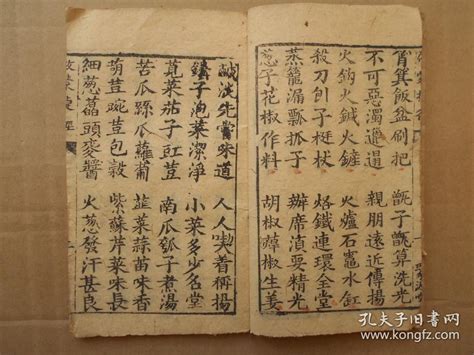 筲箕飯盆刷把 甑子甑算洗光
不可惡濁邋遢 親朋遠近傳揚
火鈎火鉗火鏟 火爐石竈水缸
殺刀刨子梃杖 烙鐵連環全堂
蒸籠漏瓢抓子 辦席湏要精光
葱子花椒作料 胡椒椒生姜
鹹淡先嘗味道 人人喫着稱揚
子泡菜潔淨 小菜多少名堂
莧菜茄子豇荳 南瓜瓠子煮湯
苦瓜絲瓜蘿蔔 韮菜蒜苗味香
葫荳豌荳包穀 紫蘇芹菜味長
細葱藠頭麥醬 火葱發汗甚良
孔夫子旧书网
www.kongfz.com